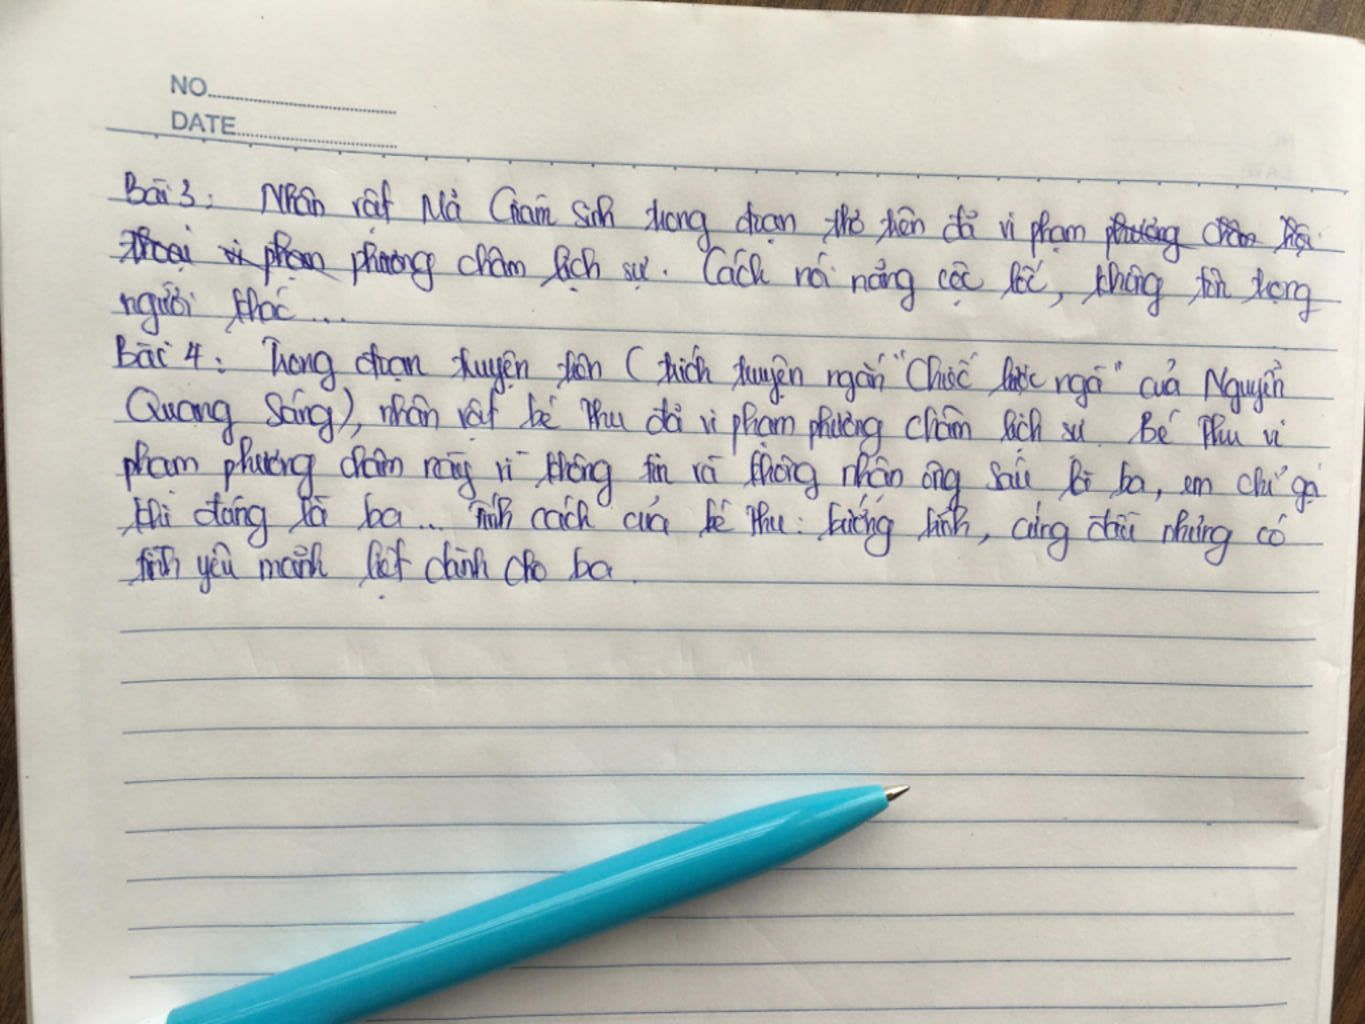 NO
DATE
Bài 3: Nhân vật Mã Giám Sinh trong đoạn thơ trên đã vi phạm phương châm hội
thoại vi phạm phương châm lịch sự. Cách nói năng cộc lốc, không tôn trọng
người khác...
Bài 4: Trong đoạn truyện trên (trích truyện ngắn "Chiếc lược ngà" của Nguyễn
Quang Sáng), nhân vật bé Thu đã vi phạm phương châm lịch sự. Bé Thu vi
phạm phương châm này vì không tin và không nhận ông Sáu là ba, em chỉ gọi
khi đáng là ba... Tính cách của bé Thu: bướng bỉnh, cứng đầu nhưng có
tình yêu mãnh liệt dành cho ba.